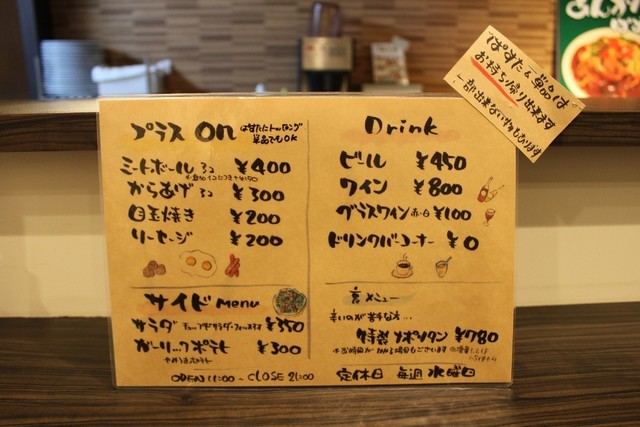 ぱすた&単品は
お持ち帰り出来ます
一部出来ない物もあります
プラス on
ミートボール 3コ ¥400
からあげ 3コ ¥300
目玉焼き ¥200
ソーセージ ¥200
サイド menu
サラダ ¥350
ガーリックポテト ¥300
OPEN 11:00 ~ CLOSE 21:00
Drink
ビール ¥450
ワイン ¥800
グラスワイン 赤・白 ¥100
ドリンクバーコーナー ¥0
裏メニュー
辛いのが苦手な方...
特製ナポリタン ¥780
定休日 毎週水曜日